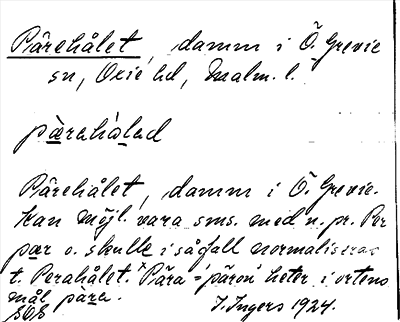 Pärehålet, damm i Ö. Grevie
sn, Oxie hd, Malm. l.
pærahålad
Pärehålet, damm i Ö. Grevie.
Kan möjl. vara sms. med n. pr. Per
pær o. skulle i så fall normaliseras
t. Perahålet. Pära = 'päron' heter i ortens
mål pära.
I. Ingers 1924.